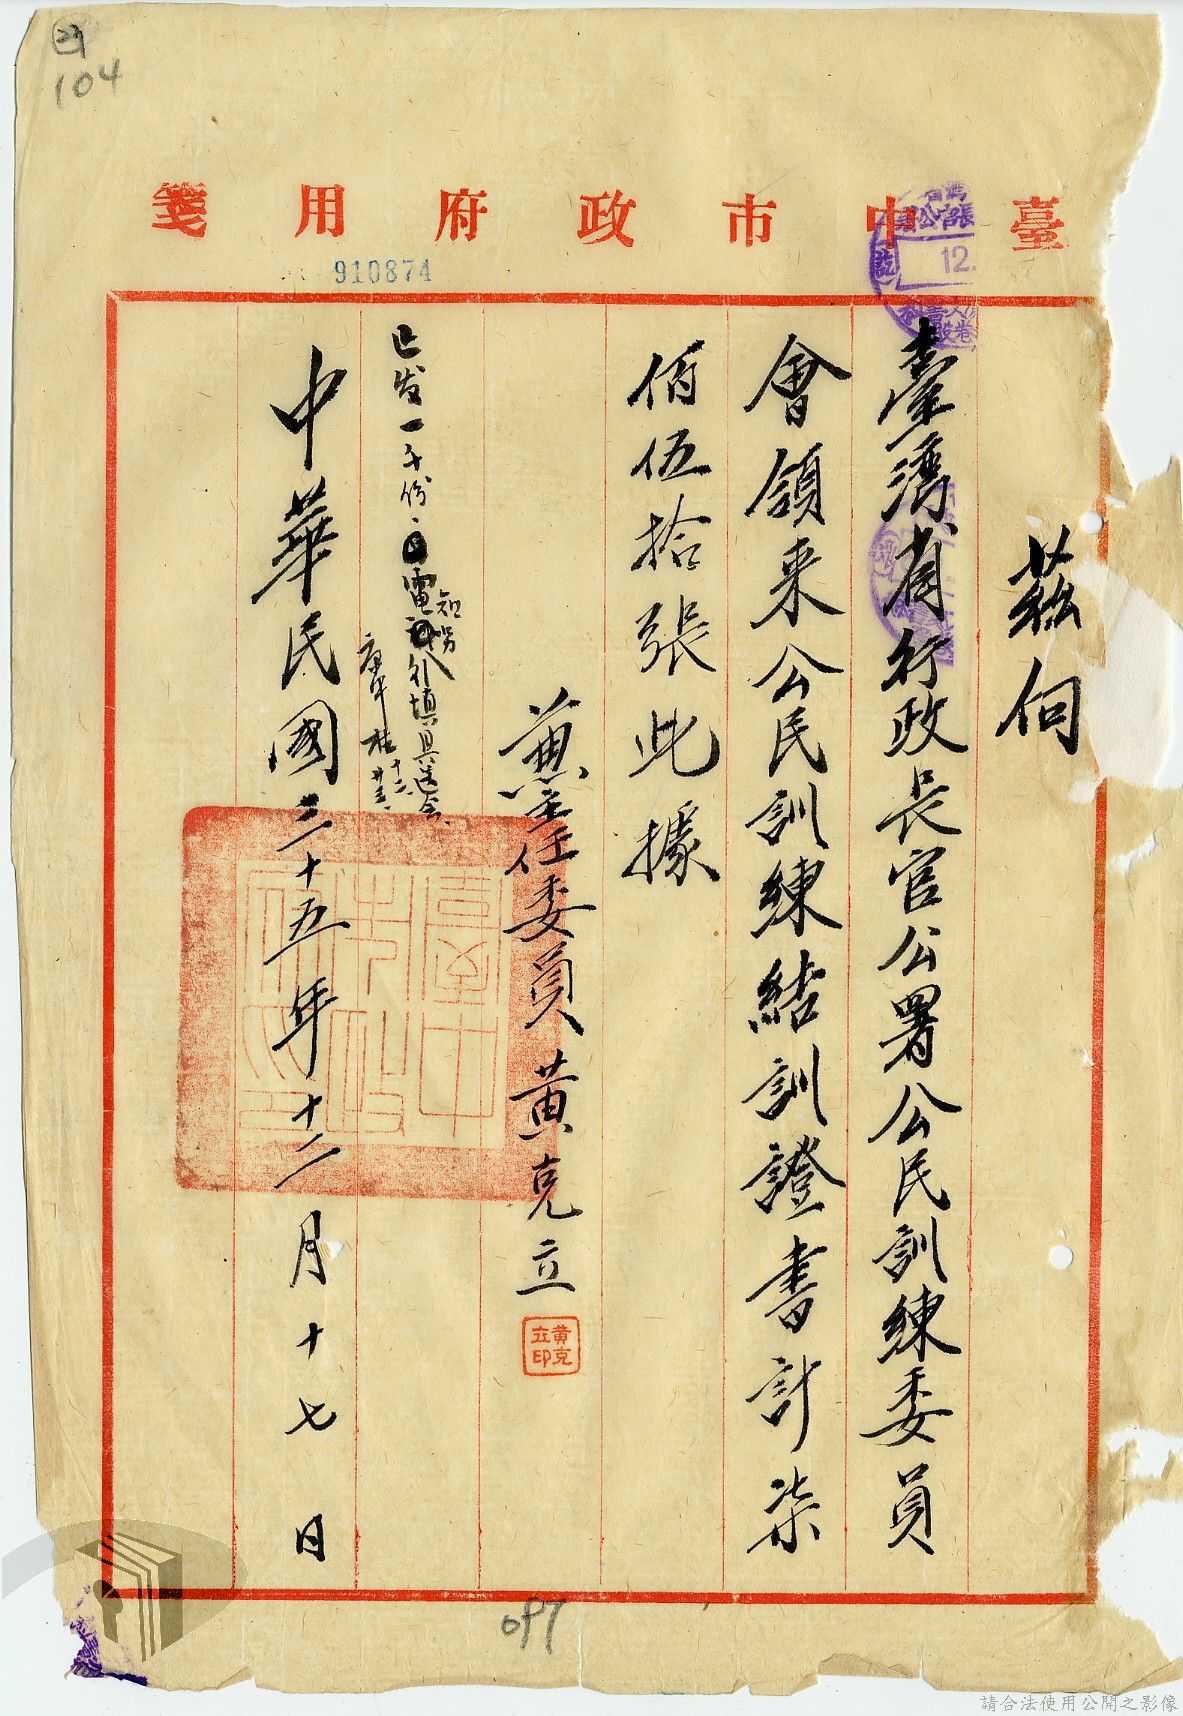 104
臺中市政府用箋
910874
12.
茲向
臺灣省行政長官公署公民訓練委員
會領来公民訓練結訓證書計柒
佰伍拾張此據
兼主任委員 黃克立
黃克立印
已发一千份
電知另补填具送会
中華民國三十五年十二月十七日
097
請合法使用公開之影像